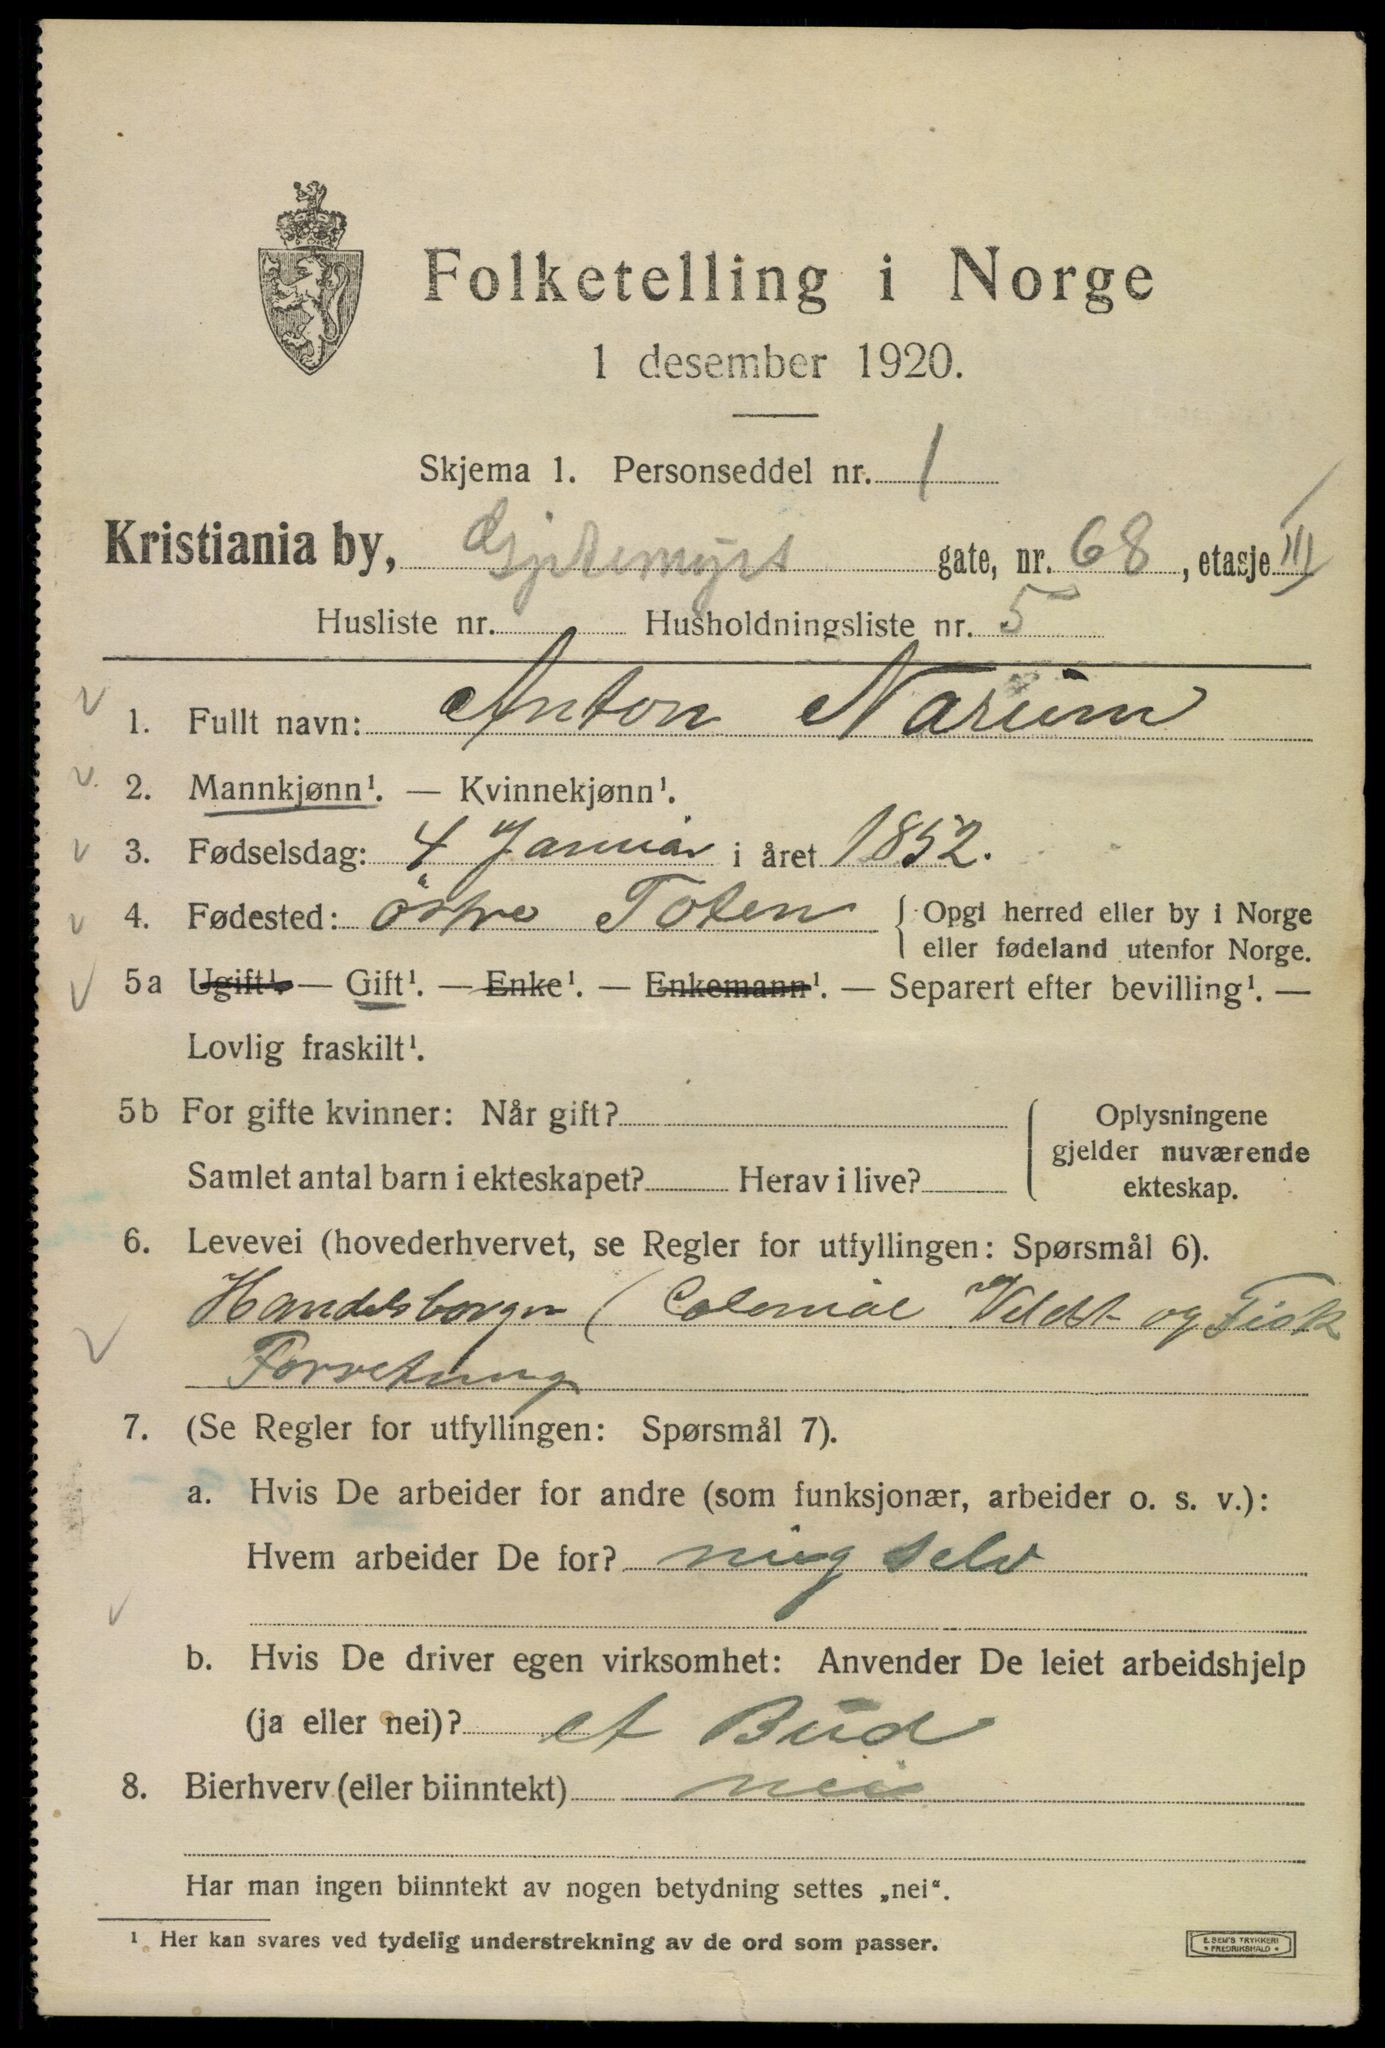 Folketelling i Norge
1 desember 1920.
Skjema 1. Personseddel nr. 1
Kristiania by, Gjetemyrs gate, nr. 68, etasje III
Husliste nr. Husholdningsliste nr. 5
1. Fullt navn: Anton Narum
2. Mannkjønn¹. — Kvinnekjønn¹.
3. Fødselsdag: 4 Januar i året 1852.
4. Fødested: Östre Toten { Opgi herred eller by i Norge
eller fødeland utenfor Norge.
5a Ugift¹. — Gift¹. — Enke¹. — Enkemann¹. — Separert efter bevilling¹. —
Lovlig fraskilt¹.
5b For gifte kvinner: Når gift? { Oplysningene
gjelder nuværende
Samlet antal barn i ekteskapet? Herav i live? ekteskap.
6. Levevei (hovederhvervet, se Regler for utfyllingen: Spørsmål 6).
Handelsborger (Colonial Vildt og Fisk
Forretning
7. (Se Regler for utfyllingen: Spørsmål 7).
a. Hvis De arbeider for andre (som funksjonær, arbeider o. s. v.):
Hvem arbeider De for? mig selv
b. Hvis De driver egen virksomhet: Anvender De leiet arbeidshjelp
(ja eller nei)? et Bud
8. Bierhverv (eller biinntekt) nei
Har man ingen biinntekt av nogen betydning settes „nei“.
¹ Her kan svares ved tydelig understrekning av de ord som passer.
E. SEM'S TRYKKERI
• FREDRIKSHALD •